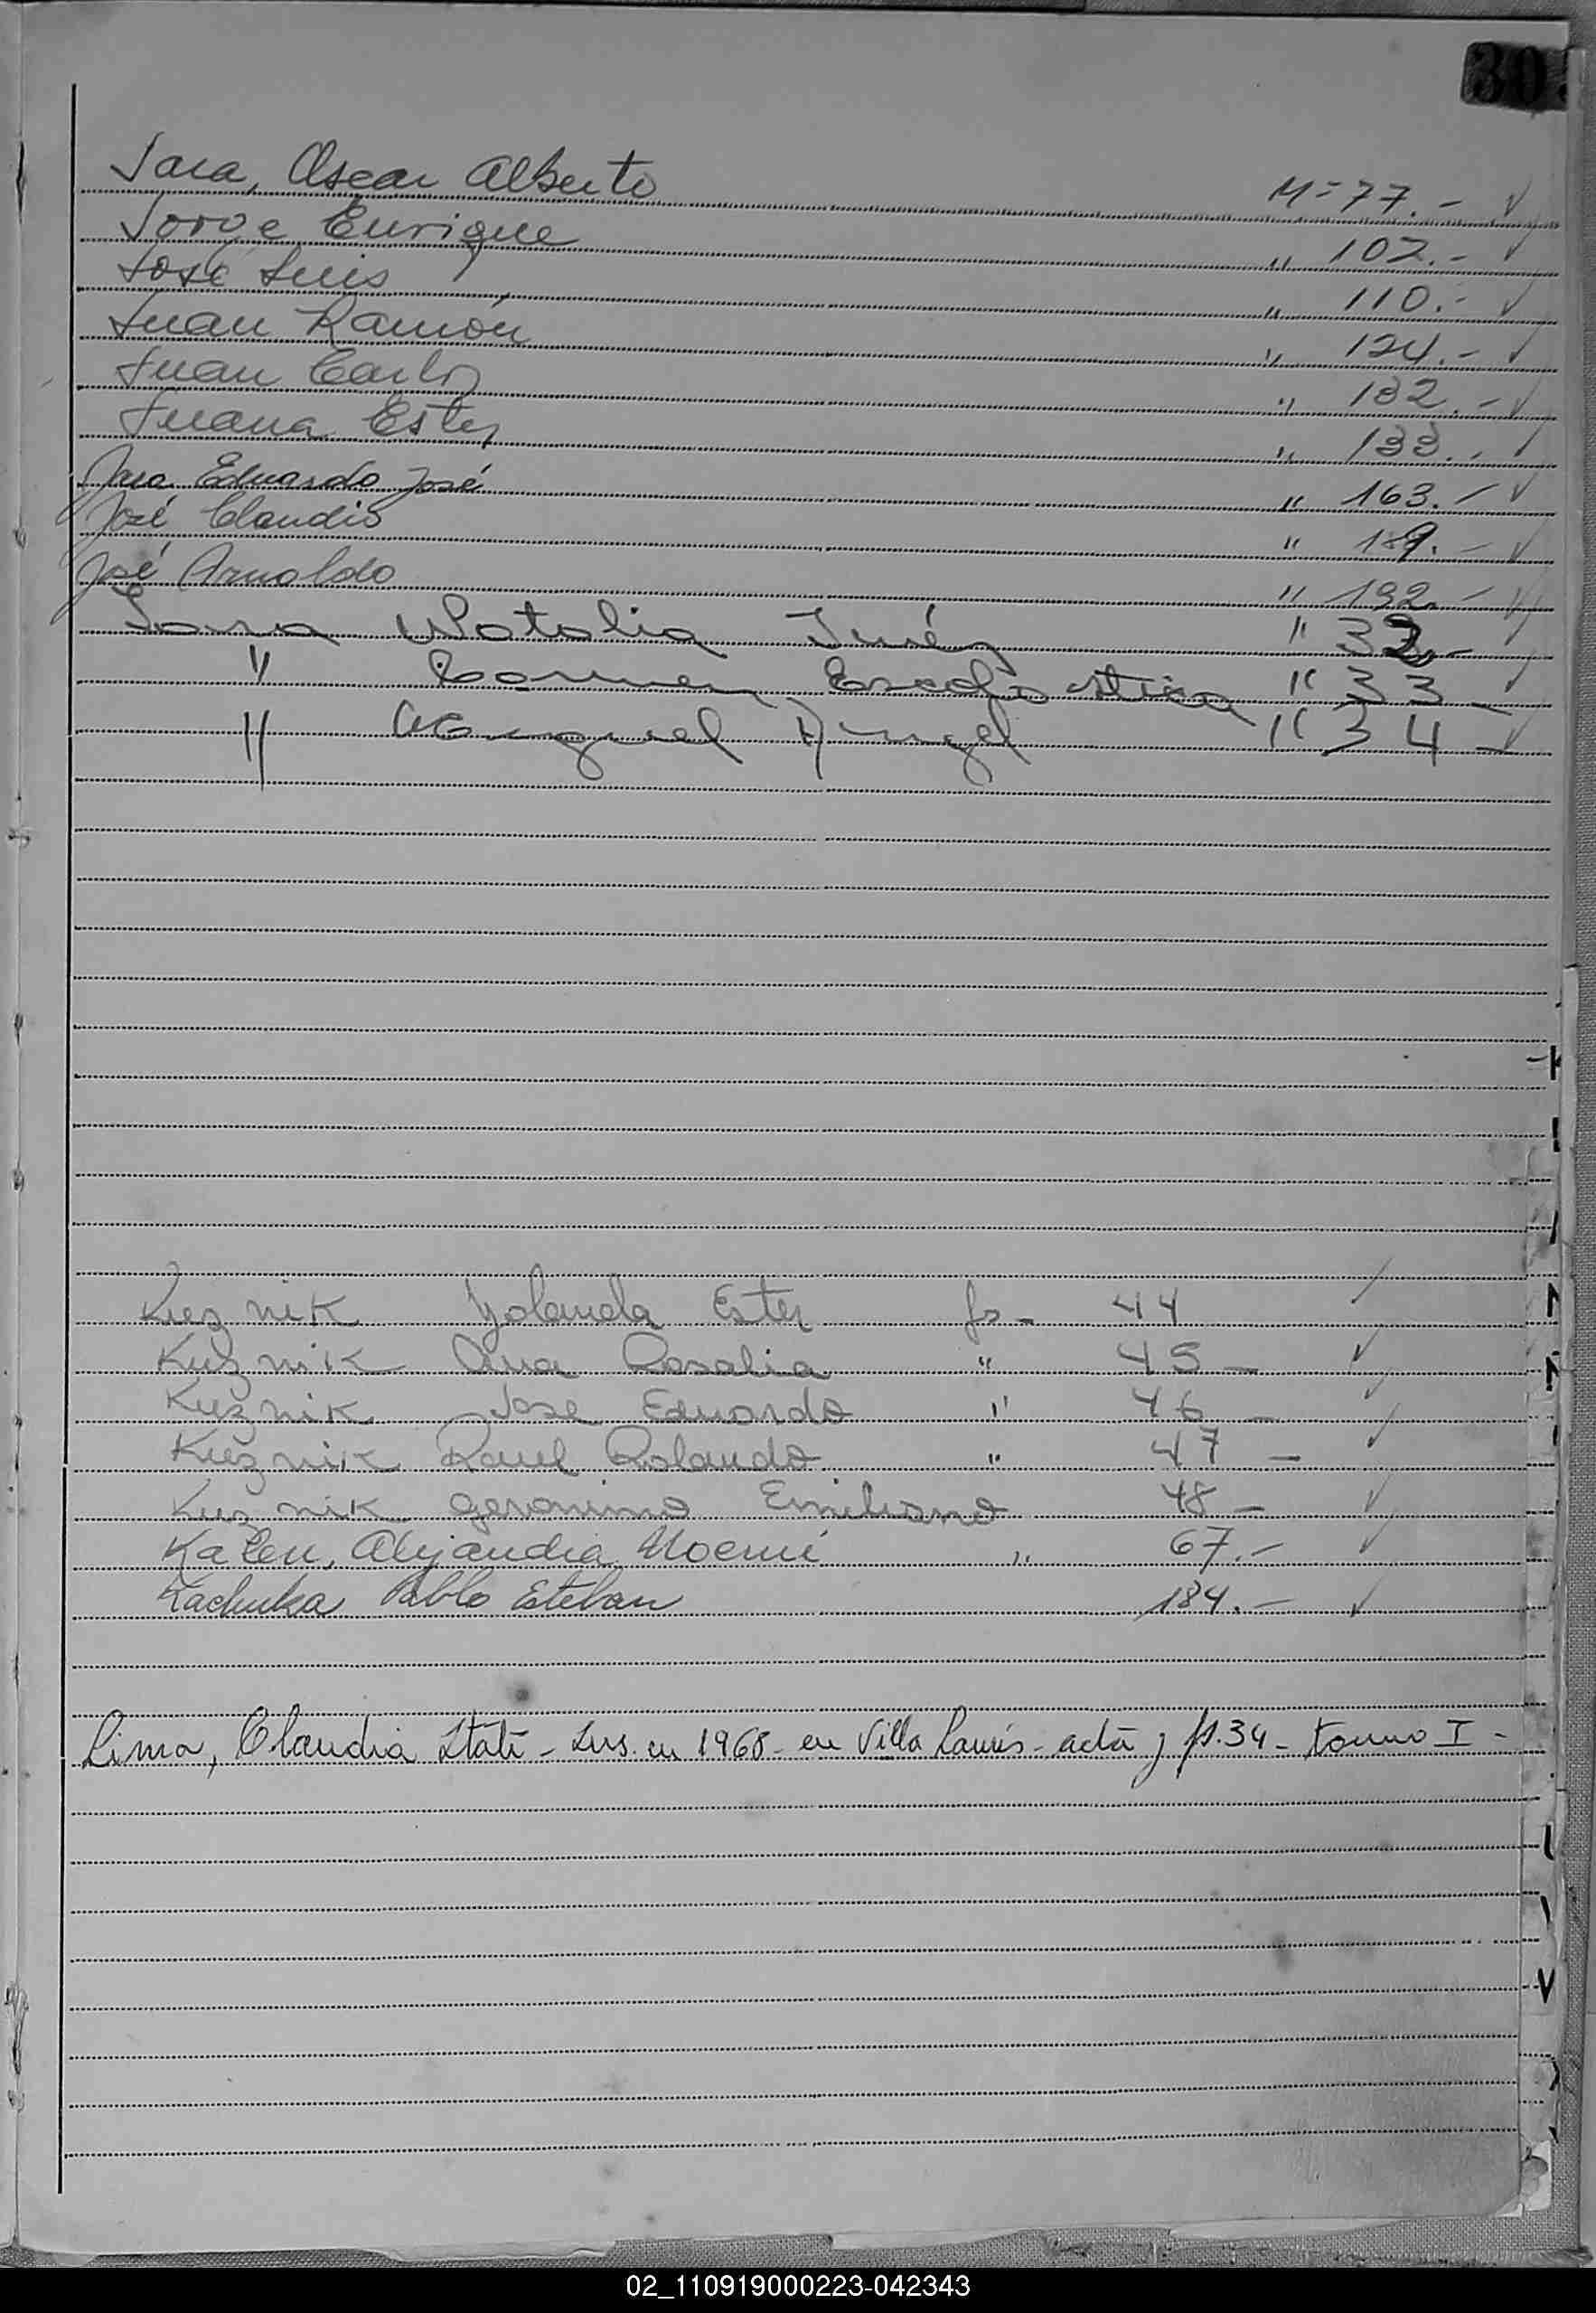 30
Jara, Oscar Alberto Nº 77.- ✓
Jorge Enrique " 102.- ✓
José Luis " 110.- ✓
Juan Ramón " 124.- ✓
Juan Carlos " 132.- ✓
Juana Ester " 133.- ✓
Jara Eduardo José " 163.- ✓
José Claudio " 189.- ✓
José Arnoldo " 192.- ✓
Jara Natalia Inés " 32.- ✓
" Carmen Escolastica " 33 - ✓
" Miguel Angel " 34 - ✓
Kuznik Yolanda Ester fs- 44 ✓
Kuznik Ana Rosalia " 45 - ✓
Kuznik Jose Eduardo " 46 - ✓
Kuznik Raul Rolando " 47 - ✓
Kuznik Geronimo Emiliano 48 - ✓
Kalen, Alejandra Noemí " 67.- ✓
Kachuka Pablo Esteban 184.- ✓
Lima, Claudia - Ins. en 1968 - en Villa - acta y fs. 34 - tomo I -
02_110919000223-042343